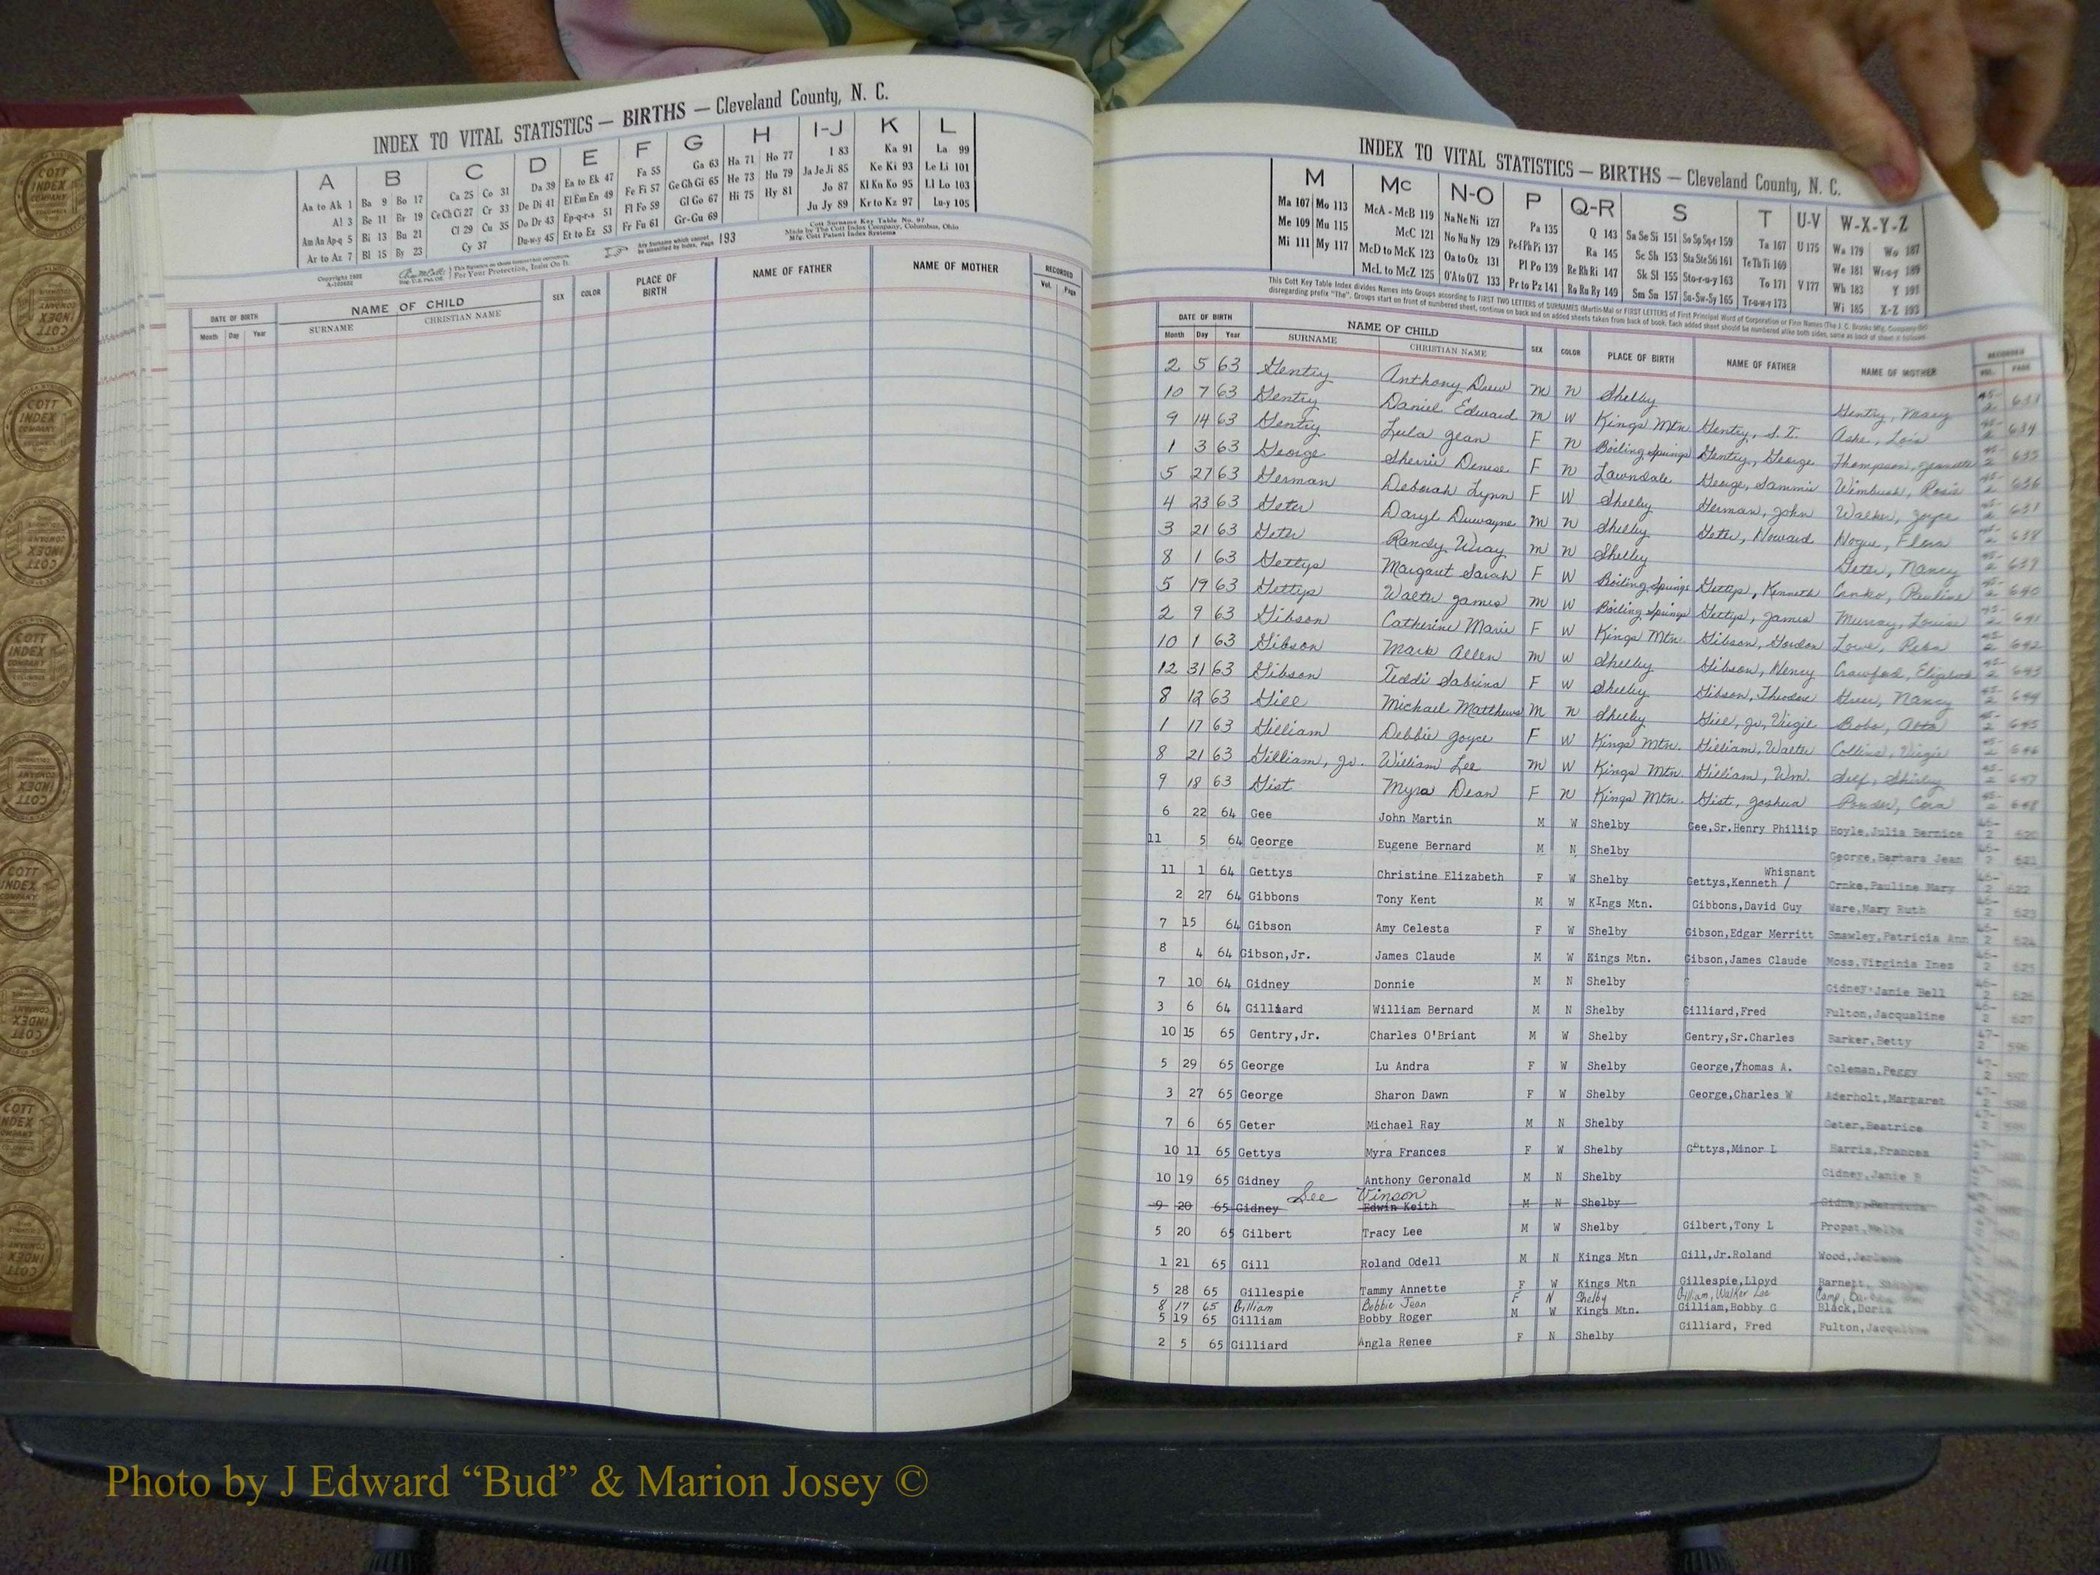 INDEX TO VITAL STATISTICS — BIRTHS — Cleveland County, N. C.
A B C D E F G H I-J K L
Aa to Ak 1 Ba 9 Bo 17 Ca 25 Co 31 Da 39 Ea to Ek 47 Fa 55 Ga 63 Ha 71 Ho 77 I 83 Ka 91 La 99
Al 3 Be 11 Br 19 Ce Ch Ci 27 Cr 33 De Di 41 El Em En 49 Fe Fi 57 Ge Gh Gi 65 He 73 Hu 79 Ja Je Ji 85 Ke Ki 93 Le Li 101
Am An Ap-q 5 Bi 13 Bu 21 Cl 29 Cu 35 Do Dr 43 Ep-q-r-s 51 Fl Fo 59 Gl Go 67 Hi 75 Hy 81 Jo 87 Kl Kn Ko 95 Ll Lo 103
Ar to Az 7 Bl 15 By 23 Cy 37 Du-w-y 45 Et to Ez 53 Fr Fu 61 Gr-Gu 69 Ju Jy 89 Kr to Kz 97 Lu-y 105
Any Surname which cannot be classified by Index, Page 193
Cott Surname Key Table No. 97
Made by The Cott Index Company, Columbus, Ohio
Mfg. Cott Patent Index Systems
For Your Protection, Insist On It.
DATE OF BIRTH NAME OF CHILD SEX COLOR PLACE OF BIRTH NAME OF FATHER NAME OF MOTHER RECORDED
Month Day Year SURNAME CHRISTIAN NAME Vol. Page
INDEX TO VITAL STATISTICS — BIRTHS — Cleveland County, N. C.
M Mc N-O P Q-R S T U-V W-X-Y-Z
Ma 107 Mo 113 McA - McB 119 Na Ne Ni 127 Pa 135 Q 143 Sa Se Si 151 So Sp Sq-r 159 Ta 167 U 175 Wa 179 Wo 187
Me 109 Mu 115 McC 121 No Nu Ny 129 Pe Pf Ph Pi 137 Ra 145 Sc Sh 153 Sta Ste Sti 161 Te Th Ti 169 We 181 Wr-u-y 189
Mi 111 My 117 McD to McK 123 Oa to Oz 131 Pl Po 139 Re Rh Ri 147 Sk Sl 155 Sto-r-u-y 163 To 171 V 177 Wh 183 Y 191
McL to McZ 125 O'A to O'Z 133 Pr to Pz 141 Ro Ru Ry 149 Sm Sn 157 Su-Sw-Sy 165 Tr-u-w-y 173 Wi 185 X-Z 193
DATE OF BIRTH NAME OF CHILD SEX COLOR PLACE OF BIRTH NAME OF FATHER NAME OF MOTHER RECORDED
Month Day Year SURNAME CHRISTIAN NAME VOL. PAGE
2 5 63 Gentry Anthony Drew M N Shelby Gentry, Mary
10 7 63 Gentry Daniel Edward M W Kings Mtn Gentry, S. T. Ashe, Lois 634
9 14 63 Gentry Lula Jean F N Boiling Springs Gentry, George Thompson, Jeanette 635
1 3 63 George Sherrie Denese F N Lawndale George, Sammie Wimbush, Rosie 636
5 27 63 German Deborah Lynn F W Shelby German, John Walker, Joyce 637
4 23 63 Geter Daryl Duwayne M N Shelby Geter, Howard Hogue, Flora 638
3 21 63 Geter Randy Wray M N Shelby Geter, Nancy 639
8 1 63 Gettys Margaret Sarah F W Boiling Springs Gettys, Kenneth Pauline 640
5 19 63 Gettys Walter James M W Boiling Springs Gettys, James Murray, Louise 641
2 9 63 Gibson Catherine Marie F W Kings Mtn. Gibson, Gordon Lowe, Reba 642
10 1 63 Gibson Mark Allen M W Shelby Gibson, Henry Crawford, Elizabeth 643
12 31 63 Gibson Teddi Sabrina F W Shelby Gibson, Theodore Greer, Nancy 644
8 12 63 Gill Michael Matthews M N Shelby Gill, Jr., Virgil Bobo, Alta 645
1 17 63 Gilliam Debbie Joyce F W Kings Mtn. Gilliam, Walter Collins, Virgie 646
8 21 63 Gilliam, Jr. William Lee M W Kings Mtn. Gilliam, Wm. Self, Shirley 647
9 18 63 Gist Myra Dean F N Kings Mtn. Gist, Joshua Ponder, Cora 648
6 22 64 Gee John Martin M W Shelby Gee,Sr.Henry Phillip Hoyle,Julia Bernice 620
11 5 64 George Eugene Bernard M N Shelby George,Barbara Jean 621
Whisnant
11 1 64 Gettys Christine Elizabeth F W Shelby Gettys,Kenneth / Crnko,Pauline Mary 622
2 27 64 Gibbons Tony Kent M W KIngs Mtn. Gibbons,David Guy Ware,Mary Ruth 623
7 15 64 Gibson Amy Celesta F W Shelby Gibson,Edgar Merritt Smawley,Patricia Ann 624
8 4 64 Gibson,Jr. James Claude M W Kings Mtn. Gibson,James Claude Moss,Virginia Inez 625
7 10 64 Gidney Donnie M N Shelby Gidney,Janie Bell 626
3 6 64 Gilliard William Bernard M N Shelby Gilliard,Fred Fulton,Jacqualine 627
10 15 65 Gentry,Jr. Charles O'Briant M W Shelby Gentry,Sr.Charles Barker,Betty 596
5 29 65 George Lu Andra F W Shelby George,Thomas A. Coleman,Peggy
3 27 65 George Sharon Dawn F W Shelby George,Charles W Aderholt,Margaret
7 6 65 Geter Michael Ray M N Shelby Geter,Beatrice
10 11 65 Gettys Myra Frances F W Shelby Gettys,Minor L Harris,Frances
10 19 65 Gidney Anthony Geronald M N Shelby Gidney,Janie B
See Vinson
9 20 65 Gidney Edwin Keith M N Shelby Gidney,
5 20 65 Gilbert Tracy Lee M W Shelby Gilbert,Tony L Propst,Melba
1 21 65 Gill Roland Odell M N Kings Mtn Gill,Jr.Roland Wood,
5 28 65 Gillespie Tammy Annette F W Kings Mtn Gillespie,Lloyd Barnett,
8 17 65 Gilliam Bobbie Jean F N Shelby Gilliam, Walker Lee Camp,
5 19 65 Gilliam Bobby Roger M W Kings Mtn. Gilliam,Bobby G Black,Doris
2 5 65 Gilliard Angla Renee F N Shelby Gilliard, Fred Fulton,Jacqualine
Photo by J Edward “Bud” & Marion Josey ©